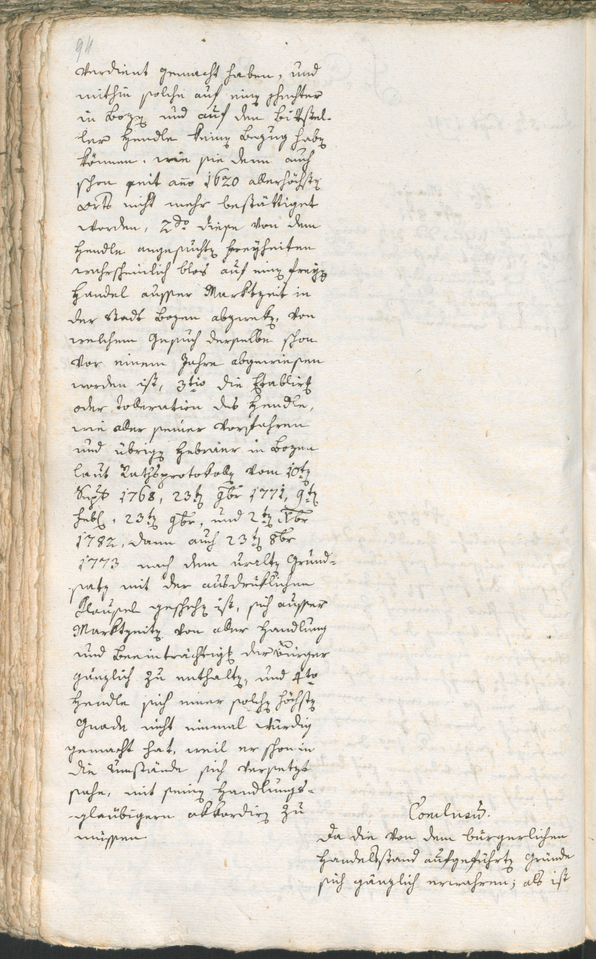 94
verdient gemacht haben, und
mithin solche auf einen schechter
in Bozen und auf den Bittstel-
ler Hendle keinen Bezug haben
können, wie sie dann auch
schon seit año 1620 allerhöchsten
Orts nicht mehr bestättiget
worden, 2do diese von dem
Hendle angesuchten Freyheiten
wahrscheinlich blos auf einen freyen
Handel ausser Marktzeit in
der Stadt Bozen abzwecken, von
welchem Gesuch derselbe schon
vor einem Jahre abgewiesen
worden ist, 3tio die
oder Toleration des Hendle,
wie aller seiner Vorfahren
und übrigen Hebräer in Bozen
laut Rathsprotokoll vom 10ten
Sept 1768, 23ten 9br 1771, 9ten
Febr, 23ten 9br, und 2ten Xbr
1782, dann auch 23ten 8br
1773 nach dem uralten Grund-
satz mit der ausdrüklichen
Klausel geschehen ist, sich ausser
Marktzeiten von aller Handlung
und Beeinträchtigung der Bürger
gänzlich zu enthalten, und 4to
Hendle sich einer solchen höchsten
Gnade nicht einmal würdig
gemacht hat, weil er schon in
die Umstände sich versetzt
sahe, mit seinen Handlungs-
gläubigern akkordiren zu
müssen
Conclusum.
Da die von dem bürgerlichen
Handelsstand aufgeführten Gründe
sich gänzlich erwahren; als ist